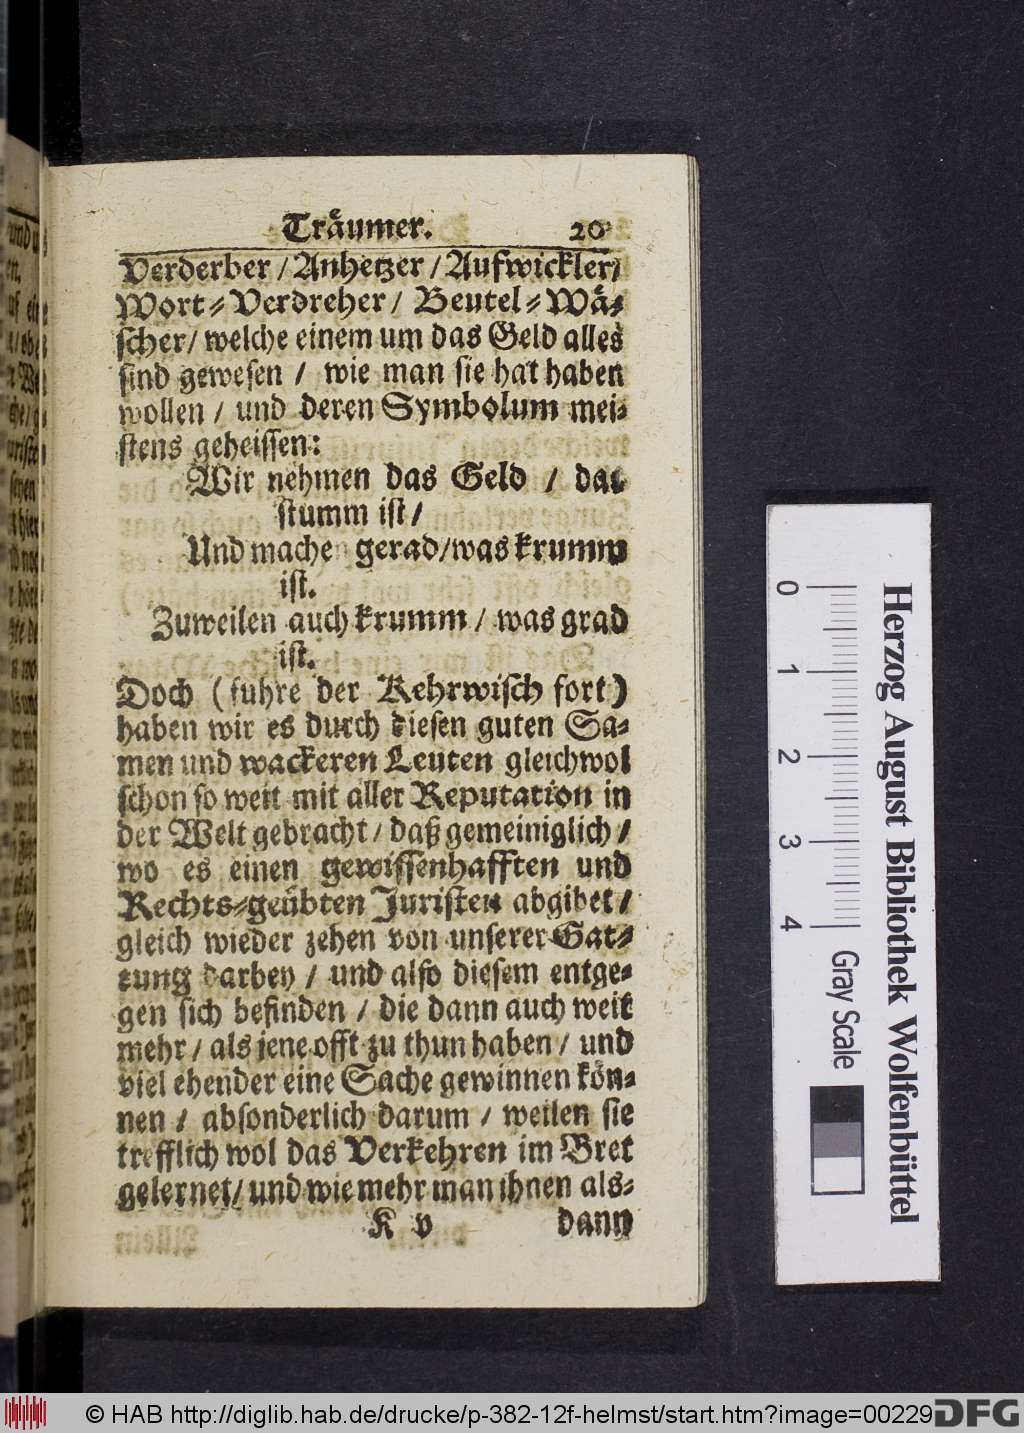 Träumer. 20
Verderber / Anhetzer / Aufwickler /
Wort-Verdreher / Beutel-Wä-
scher / welche einem um das Geld alles
sind gewesen / wie man sie hat haben
wollen / und deren Symbolum mei-
stens geheissen:
Wir nehmen das Geld / das
stumm ist /
Und machen gerad / was krumm
ist.
Zuweilen auch krumm / was grad
ist.
Doch (fuhre der Kehrwisch fort)
haben wir es durch diesen guten Sa-
men und wackeren Leuten gleichwol
schon so weit mit aller Reputation in
der Welt gebracht / daß gemeiniglich /
wo es einen gewissenhafften und
Rechts-geübten Juristen abgibet /
gleich wieder zehen von unserer Gat-
tung darbey / und also diesem entge-
gen sich befinden / die dann auch weit
mehr / als jene offt zu thun haben / und
viel ehender eine Sache gewinnen kön-
nen / absonderlich darum / weilen sie
trefflich wol das Verkehren im Bret
gelernet / und wie mehr man ihnen als-
K v dann
0 1 2 3 4
Gray Scale
Herzog August Bibliothek Wolfenbüttel
© HAB http://diglib.hab.de/drucke/p-382-12f-helmst/start.htm?image=00229
DFG